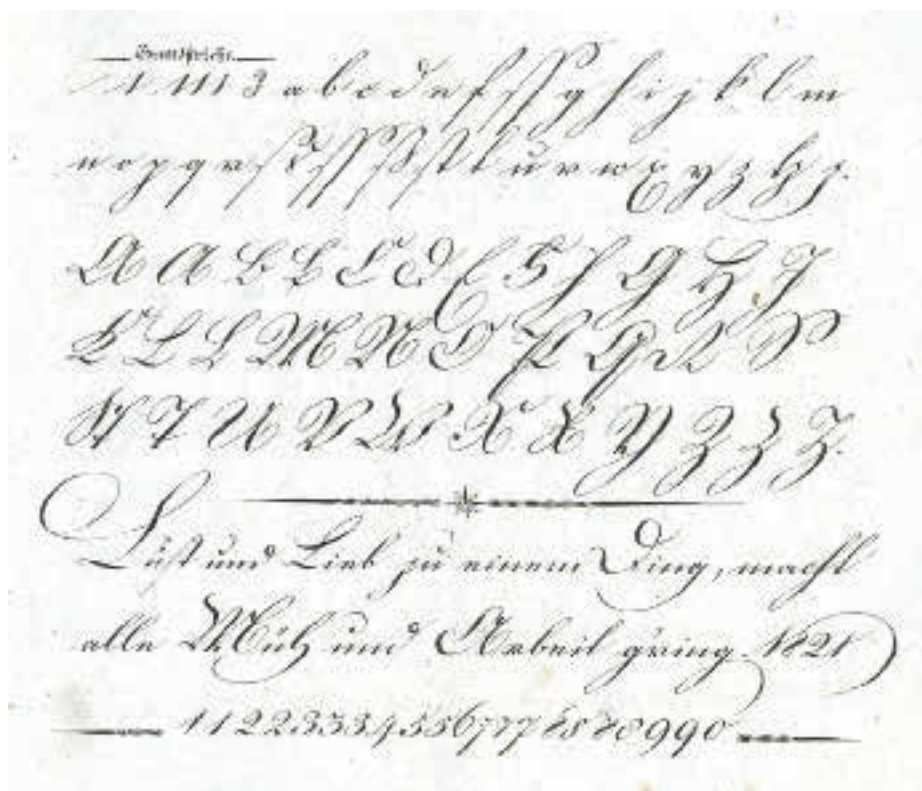 Grundstriche.
a b c d e f ſ ſſ g h i j k l m
n o p q r ſ ſſ ß ſt t u v w x y z tz
A A B B C D E F G H J
K L L M N O P Q R
St T U V W X X Y Z Z Z.
Luſt und Lieb zu einem Ding, macht
alle Müh und Arbeit gring. 1821
1 1 2 2 3 3 3 4 5 5 6 7 7 7 8 8 8 8 9 9 0